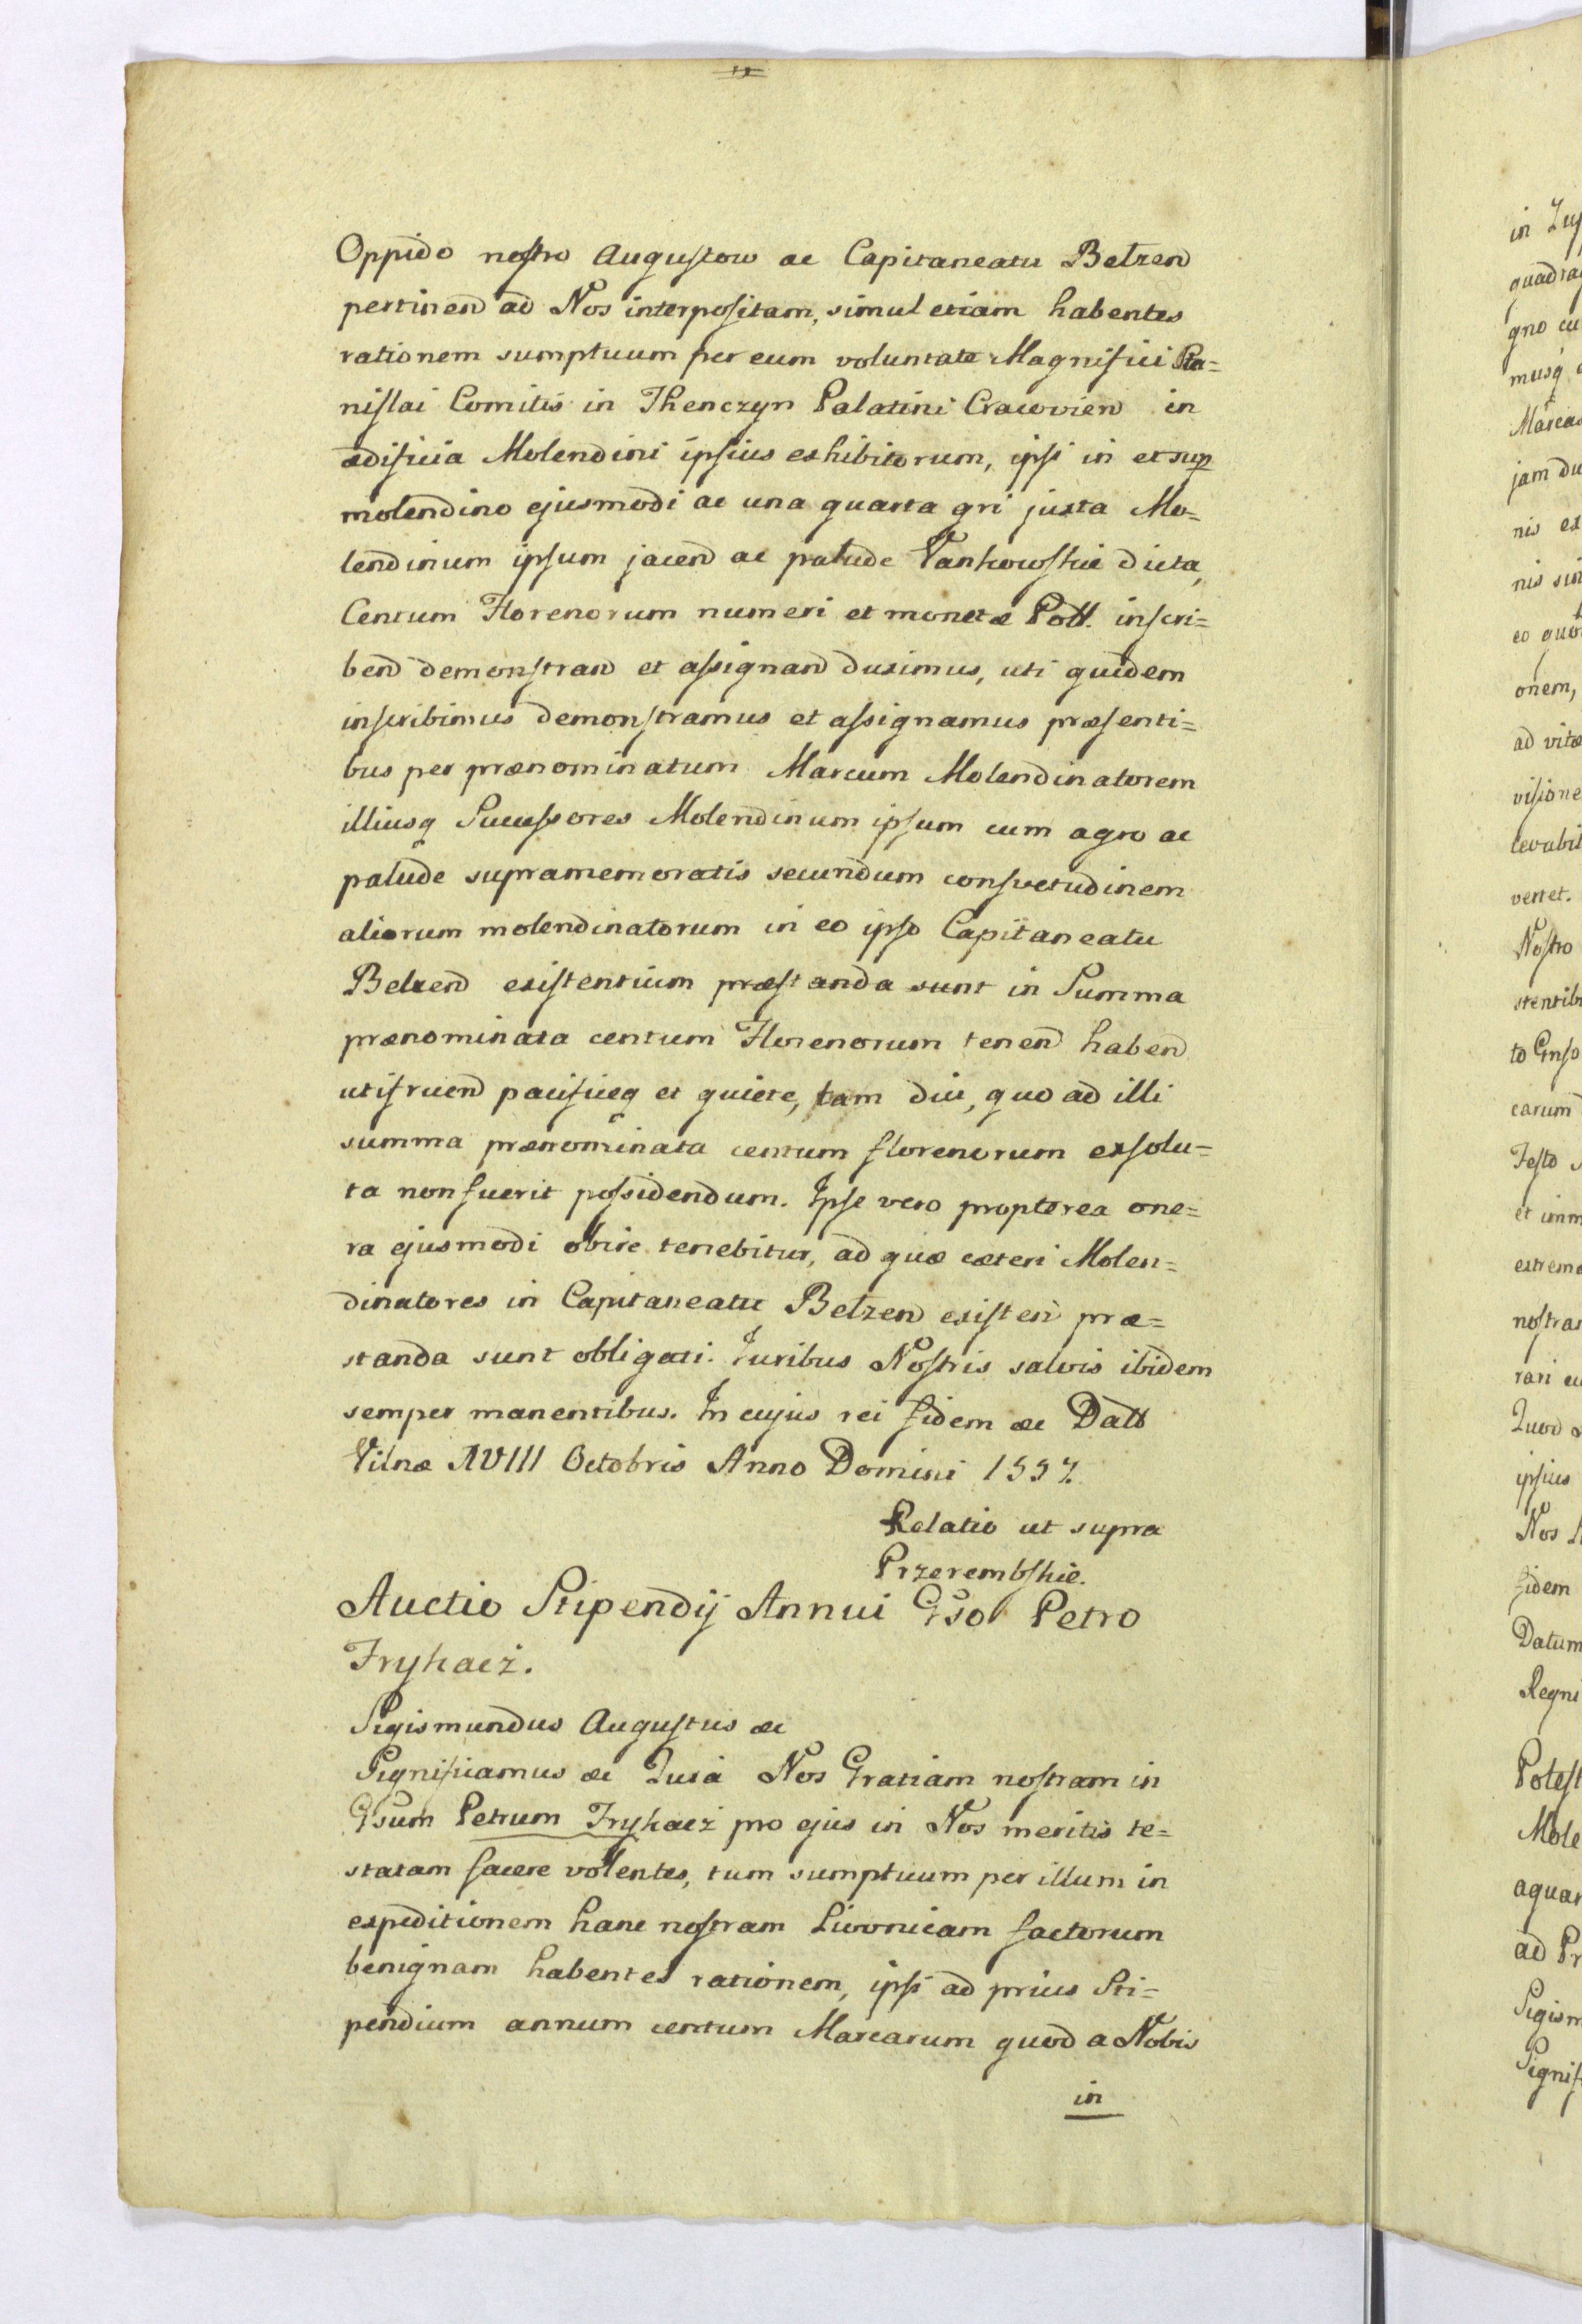 Oppido nostro Augustow ac Capitaneatu Belzen
pertinen ad Nos interpositam, simul etiam habentes
rationem sumptuum per eum voluntate Magnifici Sta=
nislai Comitis in Thenczyn Palatini Cracovien in
ædificia Molendini ipsius exhibitorum, ipsi in et sup
molendino ejusmodi ac una quarta gri juxta Mo=
lendinum ipsum jacen ac palude Vankowskie dicta,
Centum Florenorum numeri et monetæ Poll. inscri=
ben demonstran et assignan duximus, uti quidem
inscribimus demonstramus et assignamus præsenti=
bus per prænominatum Marcum Molendinatorem
illiusq Successores Molendinum ipsum cum agro ac
palude supramemoratis secundum consvetudinem
aliorum molendinatorum in eo ipso Capitaneatu
Belzen existentium præstanda sunt in Summa
prænominata centum Florenorum tenen haben
utifruen pacificeq et quiete, tam diu, quo ad illi
summa prænominata centum florenorum exsolu=
ta non fuerit possidendum. Ipse vero propterea one=
ra ejusmodi obire tenebitur, ad quæ cæteri Molen=
dinatores in Capitaneatu Belzen existen præ=
standa sunt obligati. Juribus Nostris salvis ibidem
semper manentibus. In cujus rei fidem &c Datt
Vilnæ XVIII Octobris Anno Domini 1557.
Relatio ut supra
Przerembskie.
Auctio Stipendij Annui Gso Petro
Frykacz.
Sigismundus Augustus &c
Significamus &c Quia Nos Gratiam nostram in
Gsum Petrum Frykacz pro ejus in Nos meritis te=
statam facere volentes, tum sumptuum per illum in
expeditionem hanc nostram Livonicam factorum
benignam habentes rationem, ipsi ad prius Sti=
pendium annum centum Marcarum quod a Nobis
in
in
gno
jam
nis
nis
eo
onem,
ad vitæ
vertet.
Nostro
carum
Festo
et
ipsius
Nos
fidem
Datum
Regni
Mole
ad Pr